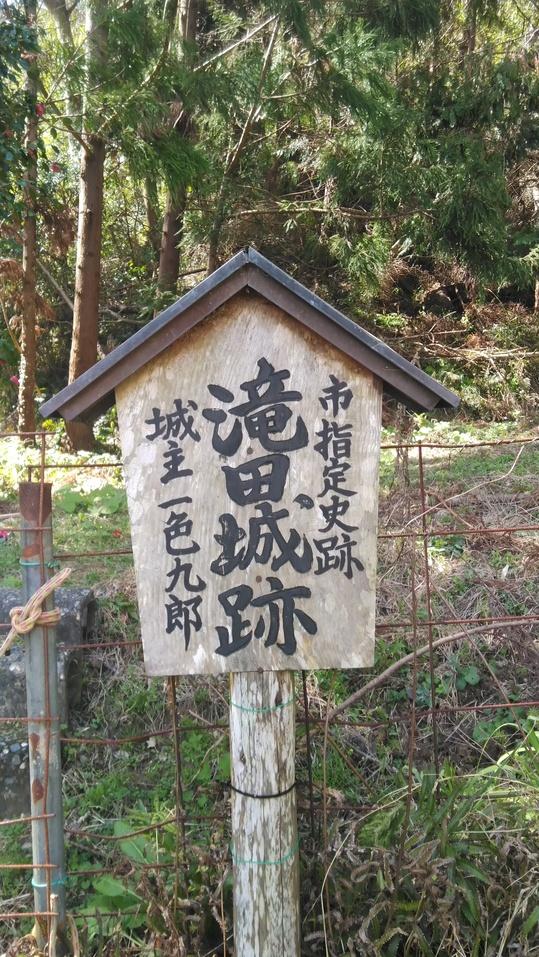 市指定史跡
滝田城跡
城主 一色九郎